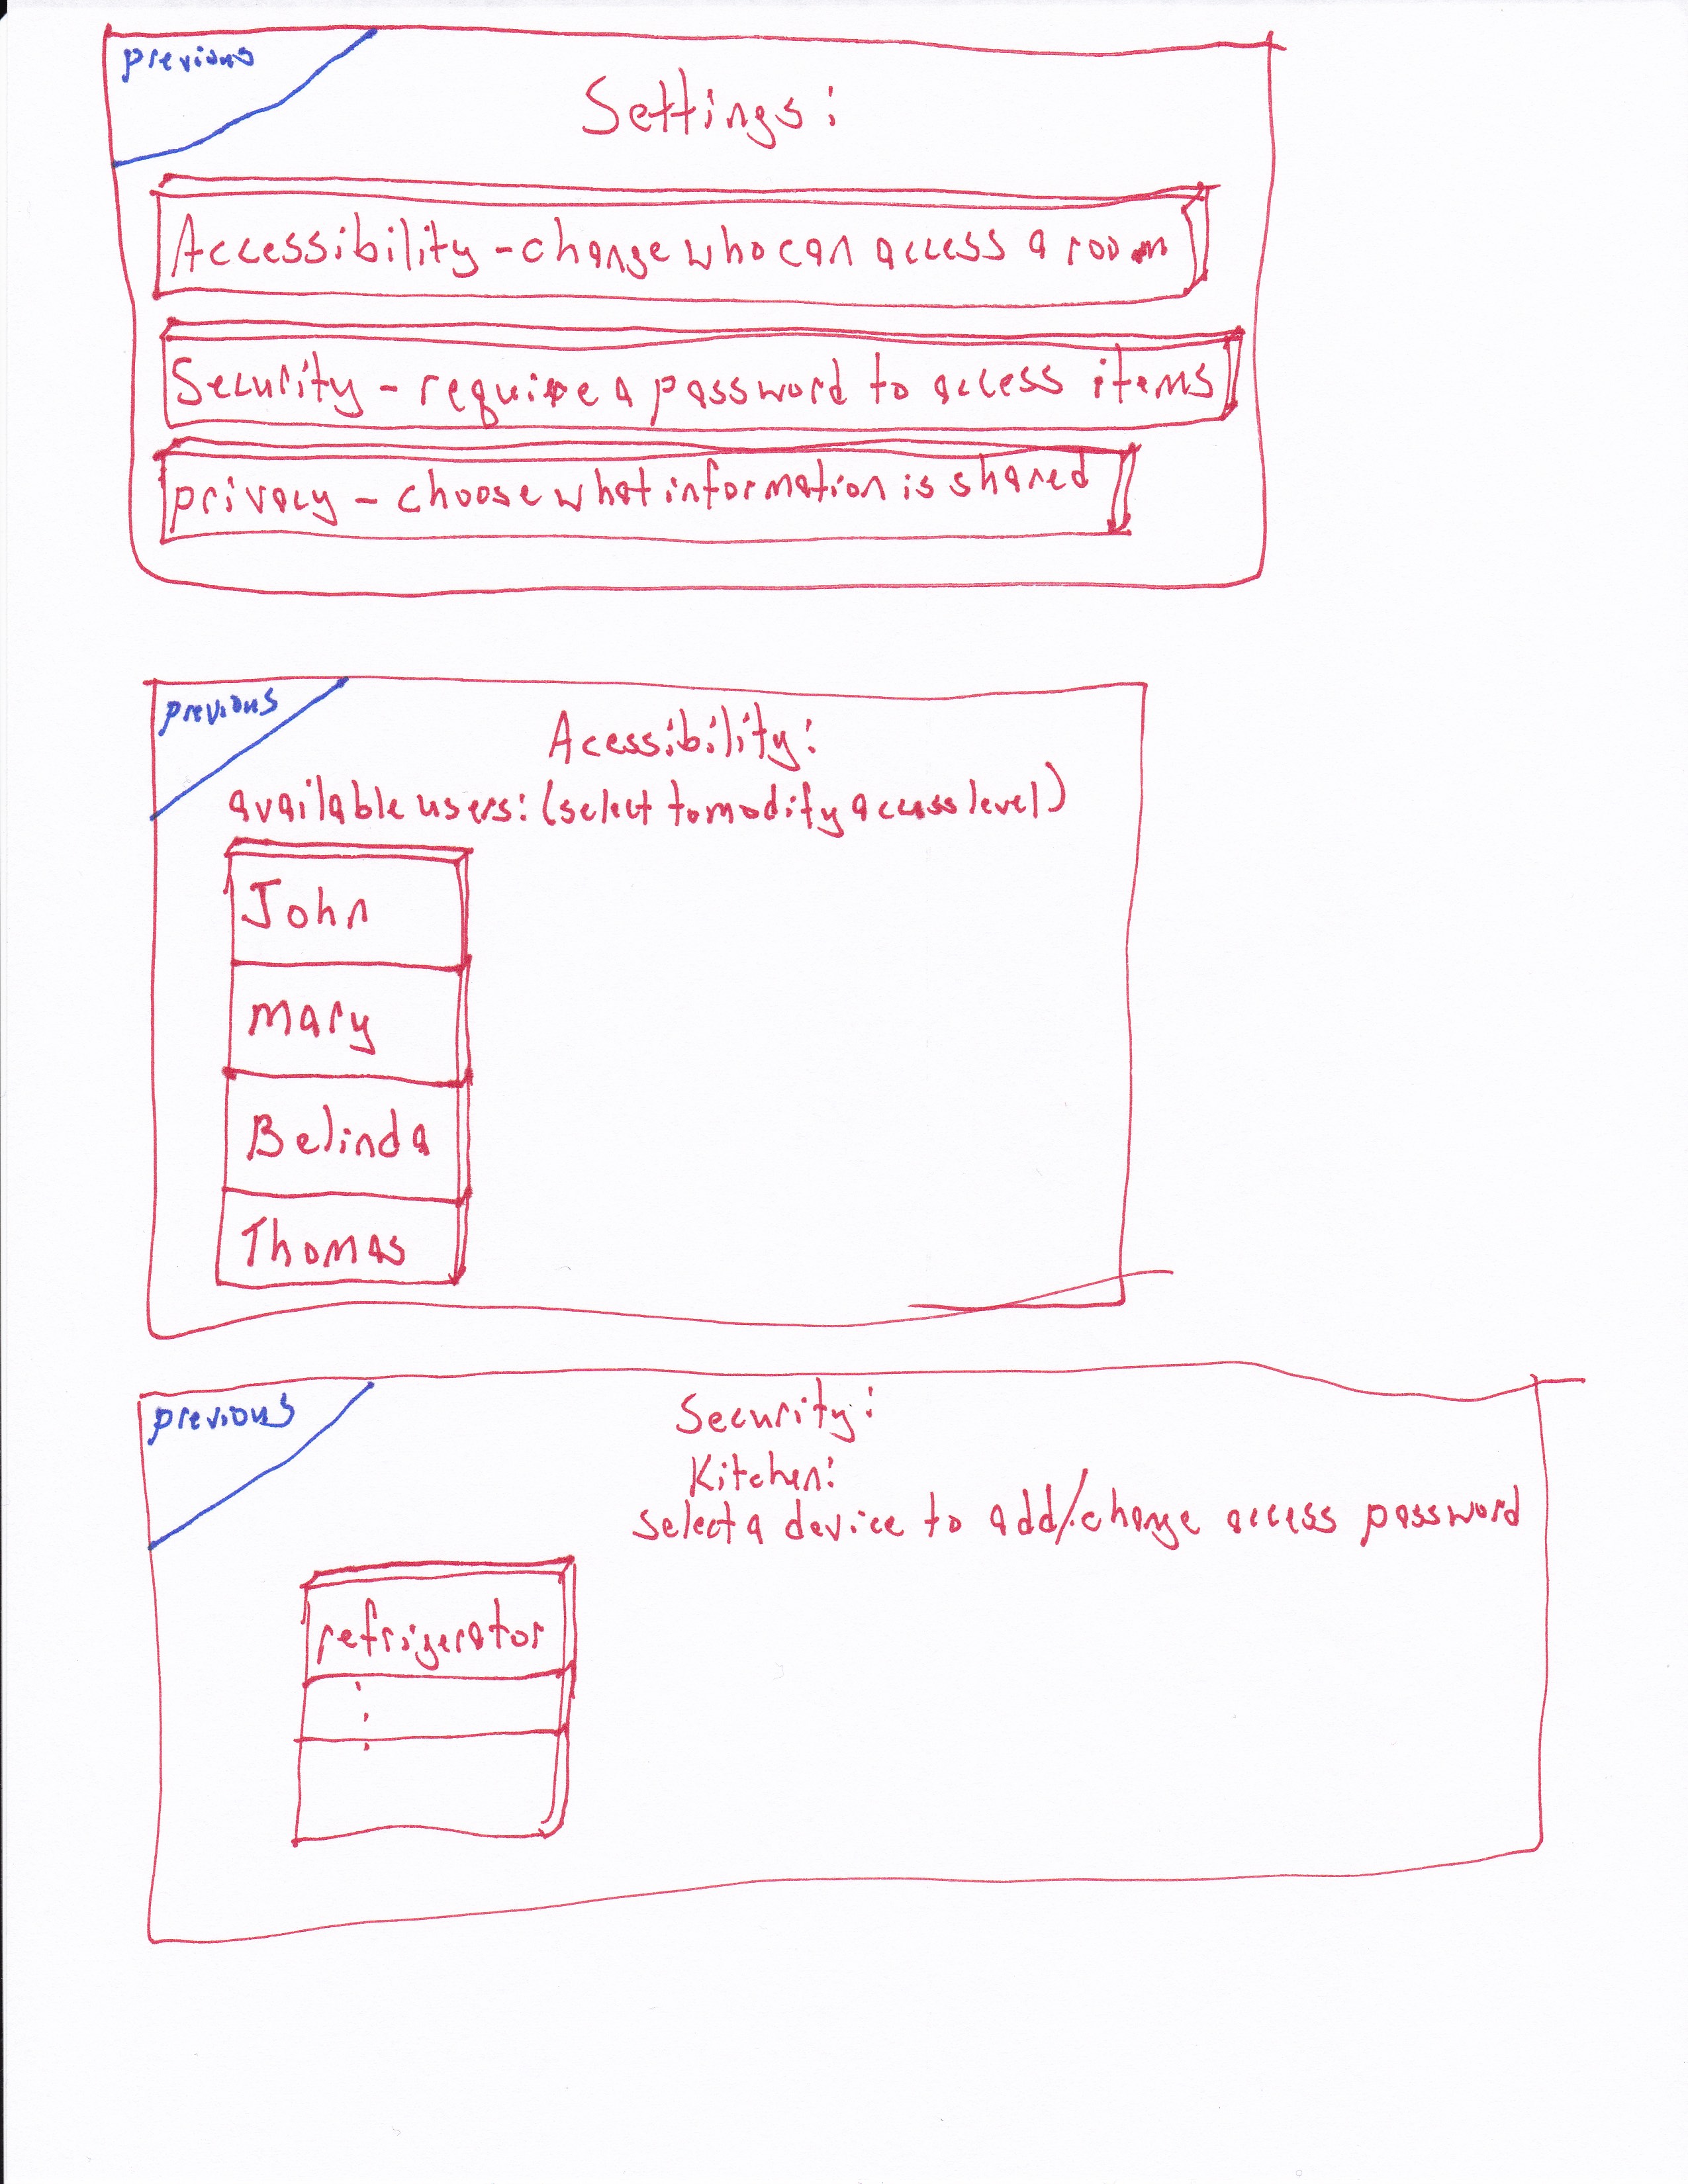 previous
Settings:
Accessibility - change who can access a room
Security - require a password to access items
privacy - choose what information is shared
previous
Acessibility:
available users: (select to modify access level)
John
mary
Belinda
Thomas
previous
Security:
Kitchen:
select a device to add/change access password
refrigerator